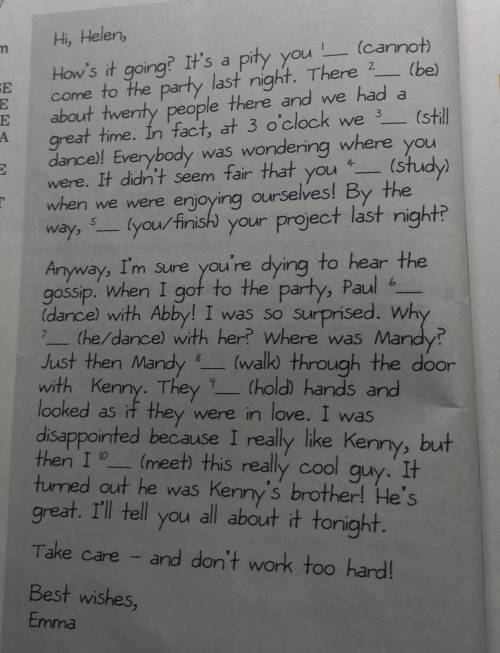 m
SE
E
E
A
E
T
Hi, Helen,
How's it going? It's a pity you 1__ (cannot)
come to the party last night. There 2__ (be)
about twenty people there and we had a
great time. In fact, at 3 o'clock we 3__ (still
dance)! Everybody was wondering where you
were. It didn't seem fair that you 4__ (study)
when we were enjoying ourselves! By the
way, 5__ (you/finish) your project last night?
Anyway, I'm sure you're dying to hear the
gossip. When I got to the party, Paul 6__
(dance) with Abby! I was so surprised. Why
7__ (he/dance) with her? Where was Mandy?
Just then Mandy 8__ (walk) through the door
with Kenny. They 9__ (hold) hands and
looked as if they were in love. I was
disappointed because I really like Kenny, but
then I 10__ (meet) this really cool guy. It
turned out he was Kenny's brother! He's
great. I'll tell you all about it tonight.
Take care – and don't work too hard!
Best wishes,
Emma